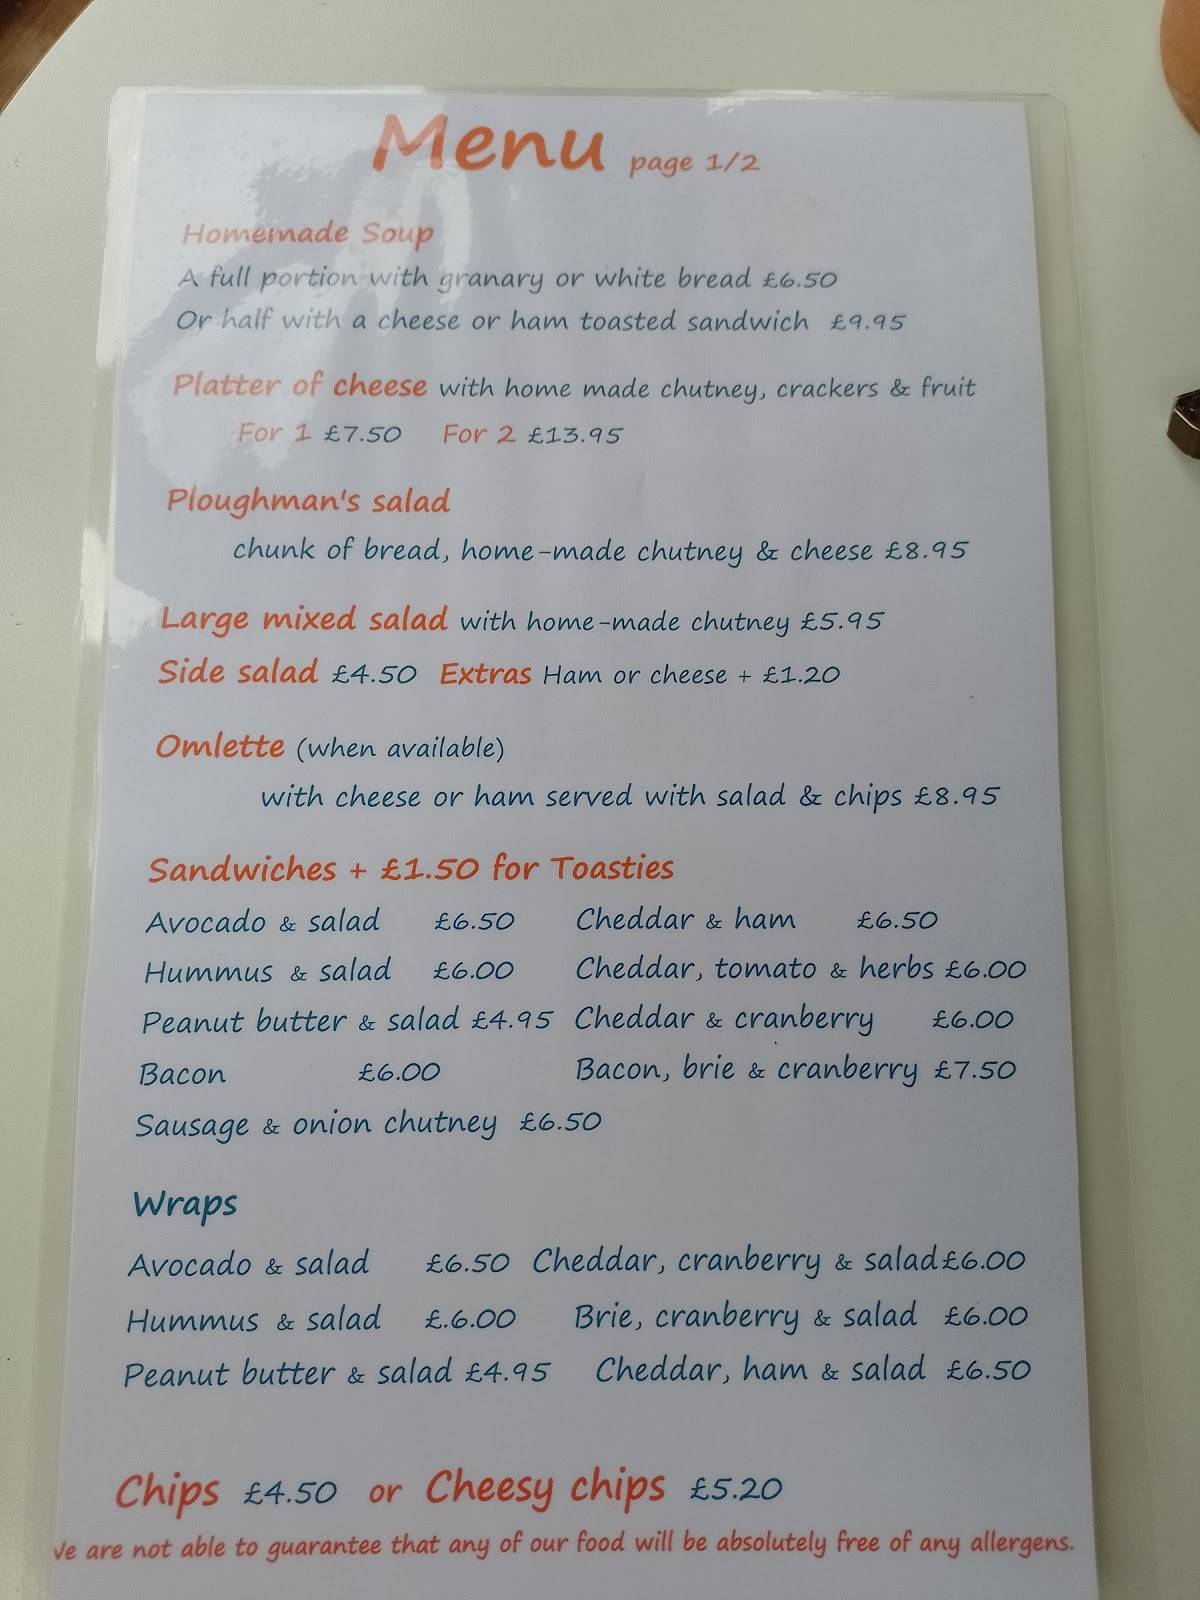 Menu page 1/2
Homemade Soup
A full portion with granary or white bread £6.50
Or half with a cheese or ham toasted sandwich £9.95
Platter of cheese with home made chutney, crackers & fruit
For 1 £7.50 For 2 £13.95
Ploughman's salad
chunk of bread, home-made chutney & cheese £8.95
Large mixed salad with home-made chutney £5.95
Side salad £4.50 Extras Ham or cheese + £1.20
Omlette (when available)
with cheese or ham served with salad & chips £8.95
Sandwiches + £1.50 for Toasties
Avocado & salad £6.50 Cheddar & ham £6.50
Hummus & salad £6.00 Cheddar, tomato & herbs £6.00
Peanut butter & salad £4.95 Cheddar & cranberry £6.00
Bacon £6.00 Bacon, brie & cranberry £7.50
Sausage & onion chutney £6.50
Wraps
Avocado & salad £6.50 Cheddar, cranberry & salad £6.00
Hummus & salad £.6.00 Brie, cranberry & salad £6.00
Peanut butter & salad £4.95 Cheddar, ham & salad £6.50
Chips £4.50 or Cheesy chips £5.20
We are not able to guarantee that any of our food will be absolutely free of any allergens.